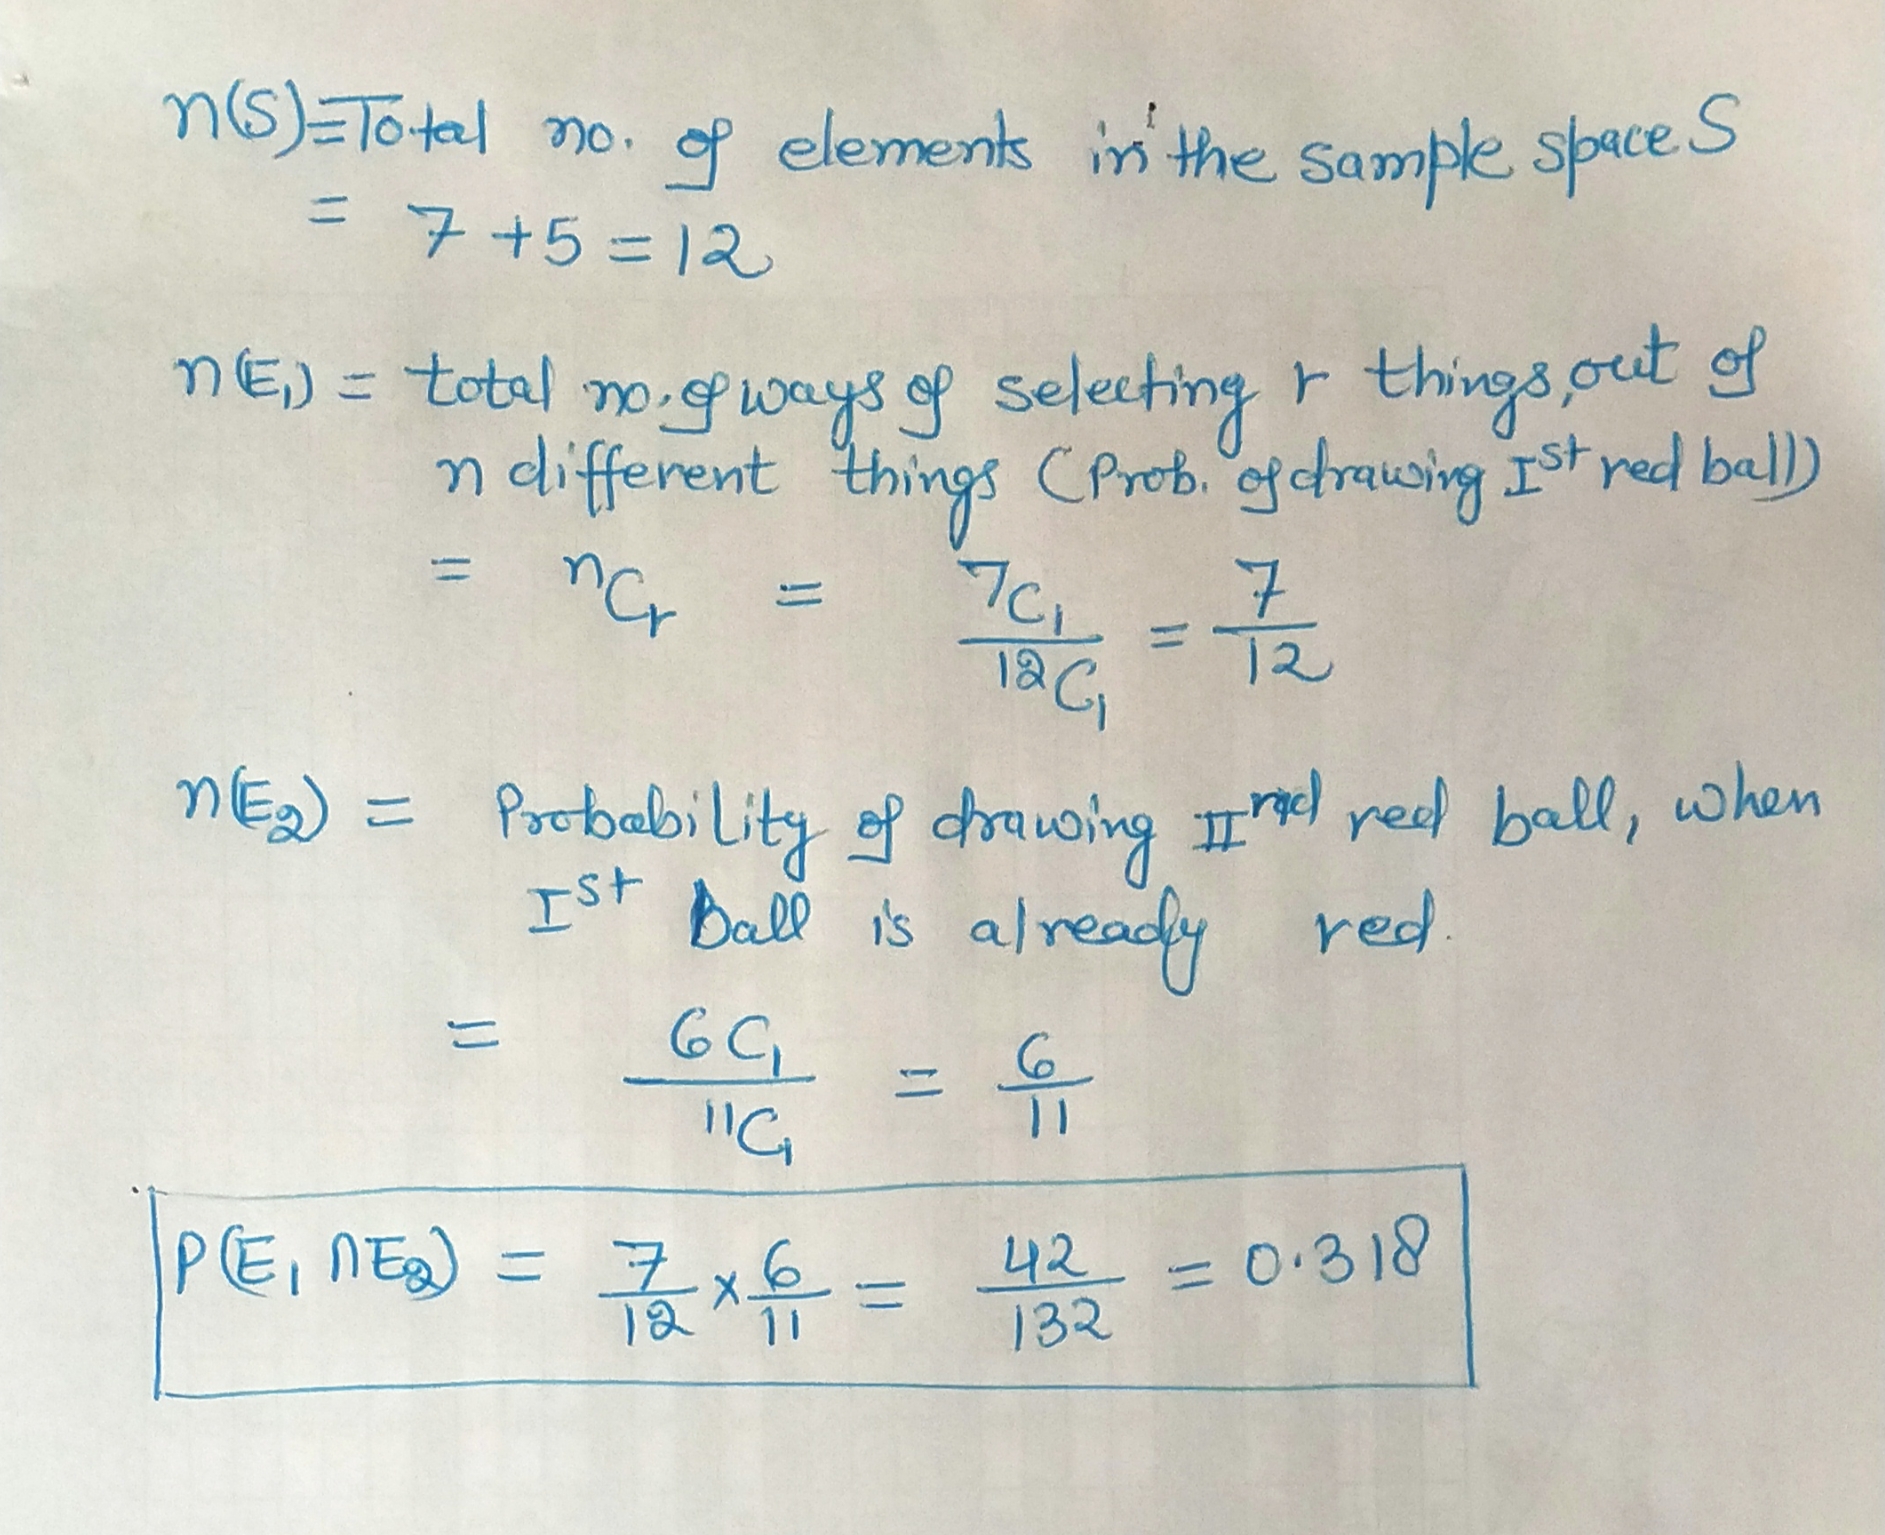 n(S)=Total no. of elements in the sample space S
= 7 + 5 = 12
n(E₁) = total no. of ways of selecting r things, out of
n different things (Prob. of drawing Iˢᵗ red ball)
= ⁿCᵣ = 7C₁/12C₁ = 7/12
n(E₂) = Probability of drawing IIⁿᵈ red ball, when
Iˢᵗ Ball is already red.
= 6C₁/11C₁ = 6/11
P(E₁ ∩ E₂) = 7/12 × 6/11 = 42/132 = 0.318